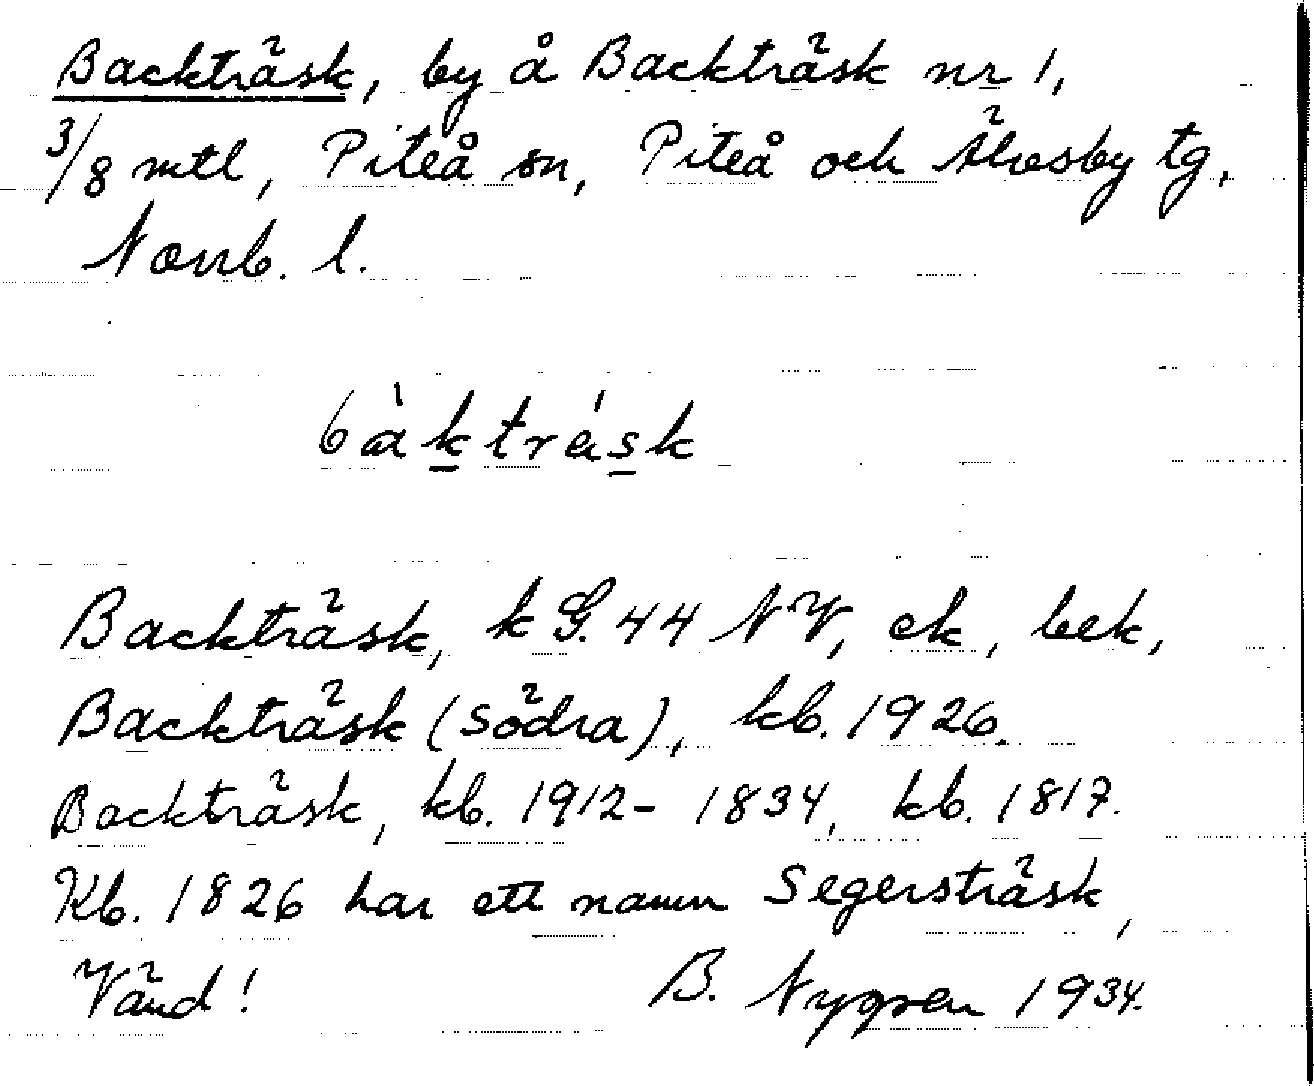 Backträsk, by å Backträsk nr 1,
3/8 mtl, Piteå sn, Piteå och Älvsby tg,
Norrb. l.
bàktrásk
Backträsk, k G. 44 NV, ek, bek,
Backträsk (södra), kb. 1926.
Backträsk, kb. 1912-1834, kb. 1817.
Kb. 1826 har ett namn Segersträsk,
Vänd! B. Nygren 1934.